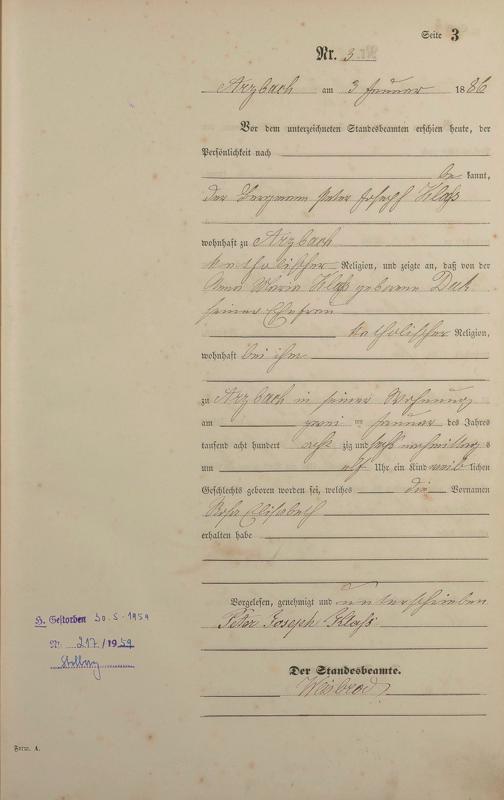 Seite 3
Nr. 3
Arzbach am 3 Januar 1886
Vor dem unterzeichneten Standesbeamten erschien heute, der
Persönlichkeit nach
be kannt,
der Bergmann Peter Joseph Klaß
wohnhaft zu Arzbach
katholischer Religion, und zeigte an, daß von der
Anna Maria Klaß geborene
seiner Ehefrau
katholischer Religion,
wohnhaft bei ihm
zu Arzbach in seiner Wohnung
am zwei ten Januar des Jahres
tausend acht hundert acht zig und sechs nachmittag s
um elf Uhr ein Kind weib lichen
Geschlechts geboren worden sei, welches die Vornamen
Rosa Elisabeth
erhalten habe
Vorgelesen, genehmigt und unterschrieben
Peter Joseph Klaß
Der Standesbeamte.
Weisbrod
H. Gestorben 30.5.1959
Nr. 217/1959
Form. A.